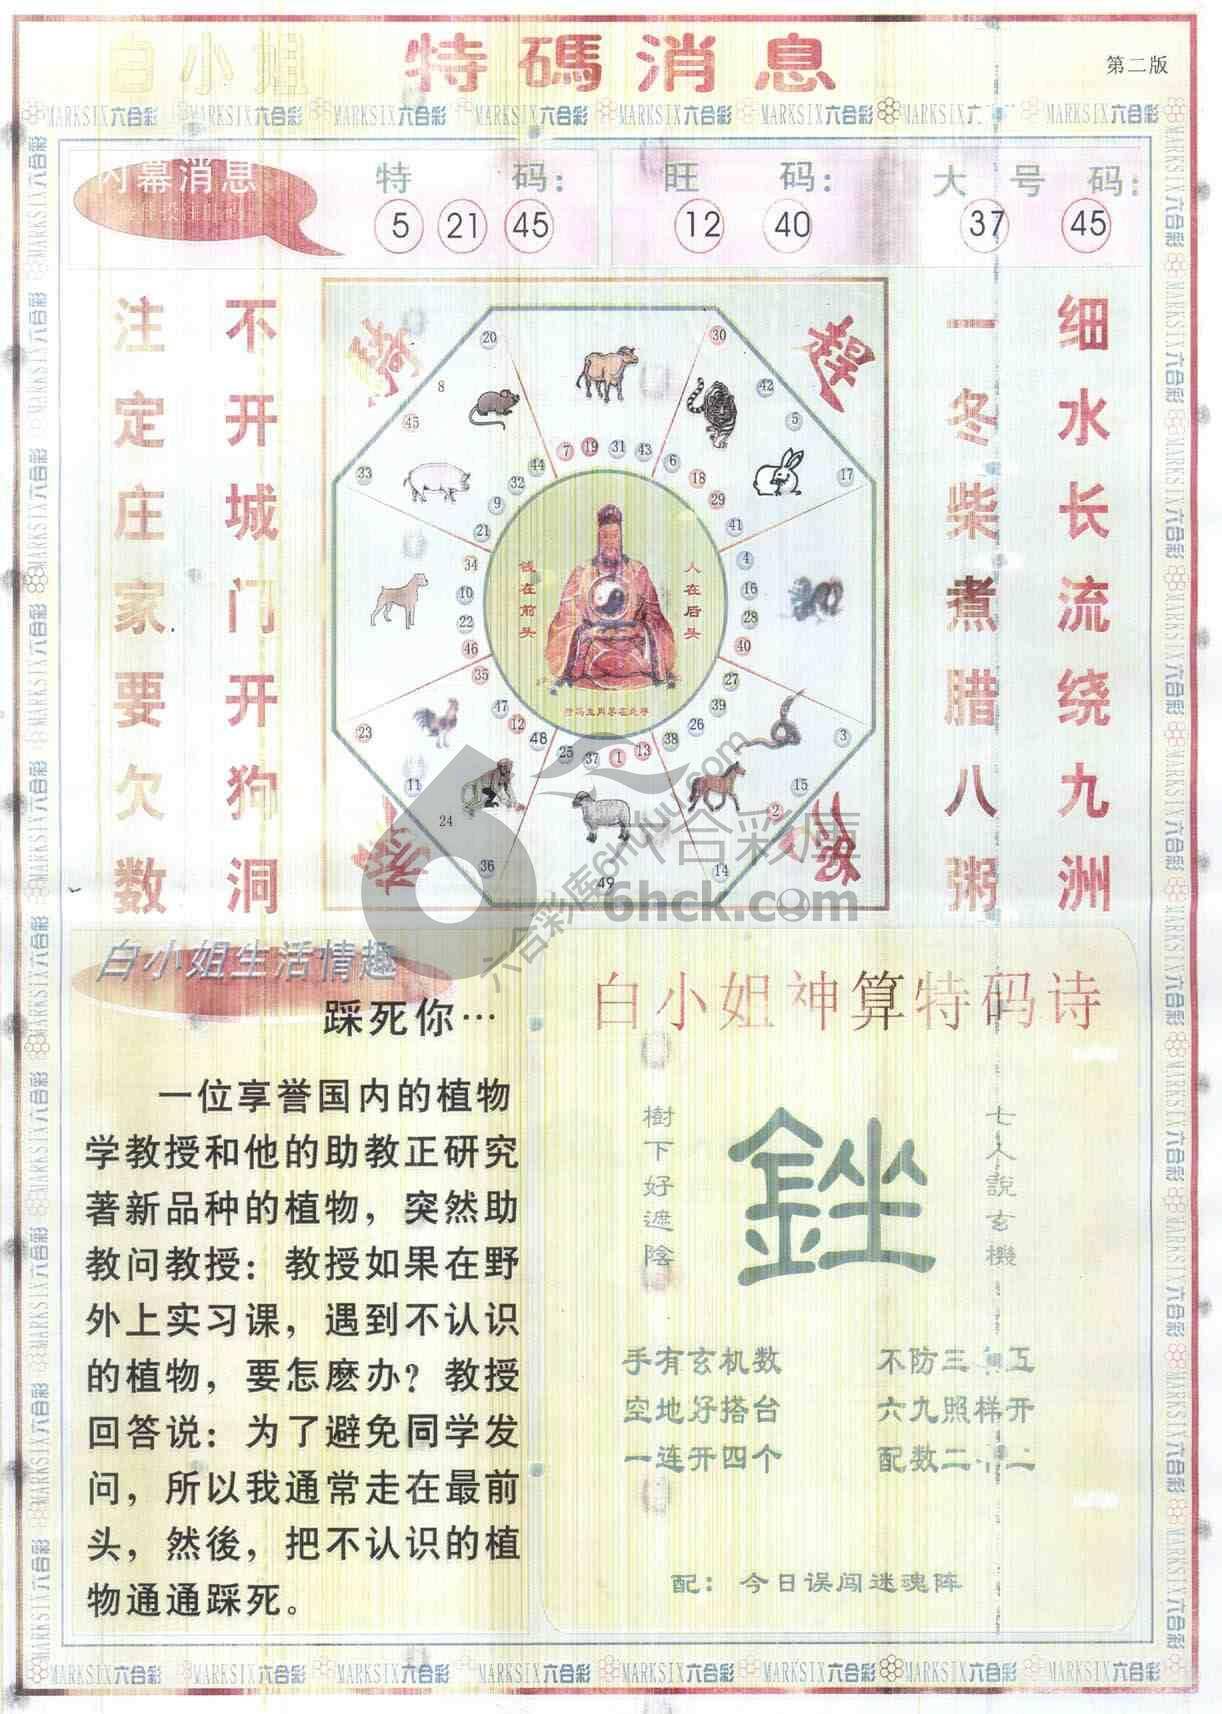 白小姐 特碼消息
第二版
MARKSIX六合彩 MARKSIX六合彩 MARKSIX六合彩 MARKSIX六合彩 MARKSIX六合彩 MARKSIX六合彩 MARKSIX六合彩 MARKSIX六合彩
内幕消息
特码：
5 21 45
旺码：
12 40
大号码：
37 45
注定庄家要欠数
不开城门开狗洞
一冬柴煮腊八粥
细水长流绕九洲
20 30
8 42
45 5
33 44 7 19 31 43 6 17
32 18
9 29
21 41
34 4
10 16
22 28
46 40
35 27
47 39
23 12 26 3
48 25 37 1 13 38
11 15
24 2
36 49 14
钱在前头
人在后头
六合彩库
6hck.com
白小姐生活情趣
踩死你…
一位享誉国内的植物
学教授和他的助教正研究
著新品种的植物，突然助
教问教授：教授如果在野
外上实习课，遇到不认识
的植物，要怎麽办？教授
回答说：为了避免同学发
问，所以我通常走在最前
头，然後，把不认识的植
物通通踩死。
白小姐神算特码诗
樹下好遮陰
銼
七人說玄機
手有玄机数
空地好搭台 六九照样开
一连开四个
配：今日误闯迷魂阵
MARKSIX六合彩 MARKSIX六合彩 MARKSIX六合彩 MARKSIX六合彩 MARKSIX六合彩 MARKSIX六合彩 MARKSIX六合彩 MARKSIX六合彩